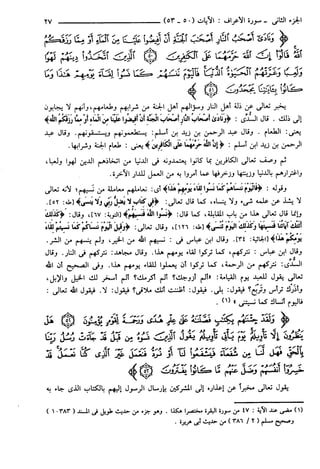 الجزء الثاني - سورة الأعراف : الآيات ( ٥٠ - ٥٣ ) ٢٧
وَنَادَىٰ أَصْحَابُ النَّارِ أَصْحَابَ الْجَنَّةِ أَنْ أَفِيضُوا عَلَيْنَا مِنَ الْمَاءِ أَوْ مِمَّا رَزَقَكُمُ
اللَّهُ قَالُوا إِنَّ اللَّهَ حَرَّمَهُمَا عَلَى الْكَافِرِينَ ﴿٥٠﴾ الَّذِينَ اتَّخَذُوا دِينَهُمْ لَهْوًا
وَلَعِبًا وَغَرَّتْهُمُ الْحَيَاةُ الدُّنْيَا فَالْيَوْمَ نَنْسَاهُمْ كَمَا نَسُوا لِقَاءَ يَوْمِهِمْ هَٰذَا وَمَا
كَانُوا بِآيَاتِنَا يَجْحَدُونَ ﴿٥١﴾
يخبر تعالى عن ذلة أهل النار وسؤالهم أهل الجنة من شرابهم وطعامهم، وأنهم لا يجابون
إلى ذلك . قال السُّدي : ﴿ونادى أصحاب النار أصحاب الجنة أن أفيضوا علينا من الماء أو مما رزقكم الله﴾
يعني: الطعام . وقال عبد الرحمن بن زيد بن أسلم: يستطعمونهم ويستسقونهم. وقال عبد
الرحمن بن زيد بن أسلم : ﴿إن الله حرمهما على الكافرين﴾ يعني : طعام الجنة وشرابها.
ثم وصف تعالى الكافرين بما كانوا يعتمدونه في الدنيا من اتخاذهم الدين لهوا ولعبا،
واغترارهم بالدنيا وزينتها وزخرفها عما أمروا به من العمل للدار الآخرة.
وقوله : ﴿فاليوم ننساهم كما نسوا لقاء يومهم هذا﴾ أي: نعاملهم معاملة من نسيهم؛ لأنه تعالى
لا يشذ عن علمه شيء ولا ينساه، كما قال تعالى: ﴿في كتاب لا يضل ربي ولا ينسى﴾ (طه: ٥٢).
وإنما قال تعالى هذا من باب المقابلة، كما قال: ﴿نسوا الله فنسيهم﴾ (التوبة: ٦٧)، وقال: ﴿كذلك
أتتك آياتنا فنسيتها وكذلك اليوم تنسى﴾ (طه: ١٢٦)، وقال تعالى: ﴿وقيل اليوم ننساكم كما نسيتم لقاء
يومكم هذا﴾ (الجاثية: ٣٤). وقال ابن عباس في : نسيهم الله من الخير، ولم ينسهم من الشر.
وقال ابن عباس : نتركهم، كما تركوا لقاء يومهم هذا. وقال مجاهد: نتركهم في النار. وقال
السدي: نتركهم من الرحمة، كما تركوا أن يعملوا للقاء يومهم هذا. وفي الصحيح أن الله
تعالى يقول للعبد يوم القيامة: «ألم أزوجك؟ ألم أكرمك؟ ألم أسخر لك الخيل والإبل،
وأذرك ترأس وتربع؟ فيقول: بلى. فيقول: أظننت أنك ملاقي؟ فيقول: لا. فيقول الله تعالى :
فاليوم أنساك كما نسيتني» (١) .
وَلَقَدْ جِئْنَاهُمْ بِكِتَابٍ فَصَّلْنَاهُ عَلَىٰ عِلْمٍ هُدًى وَرَحْمَةً لِقَوْمٍ يُؤْمِنُونَ ﴿٥٢﴾ هَلْ
يَنْظُرُونَ إِلَّا تَأْوِيلَهُ يَوْمَ يَأْتِي تَأْوِيلُهُ يَقُولُ الَّذِينَ نَسُوهُ مِنْ قَبْلُ قَدْ جَاءَتْ رُسُلُ رَبِّنَا
بِالْحَقِّ فَهَلْ لَنَا مِنْ شُفَعَاءَ فَيَشْفَعُوا لَنَا أَوْ نُرَدُّ فَنَعْمَلَ غَيْرَ الَّذِي كُنَّا نَعْمَلُ قَدْ
خَسِرُوا أَنْفُسَهُمْ وَضَلَّ عَنْهُمْ مَا كَانُوا يَفْتَرُونَ ﴿٥٣﴾
يقول تعالى مخبراً عن إعذاره إلى المشركين بإرسال الرسول إليهم بالكتاب الذي جاء به
(١) مضى عند الآية : ٤٧ من سورة البقرة مختصرا هكذا . وهو جزء من حديث طويل في المسند ( ١٠٣٨٣ )
وصحيح مسلم ( ٢ / ٣٨٦ ) من حديث أبي هريرة .